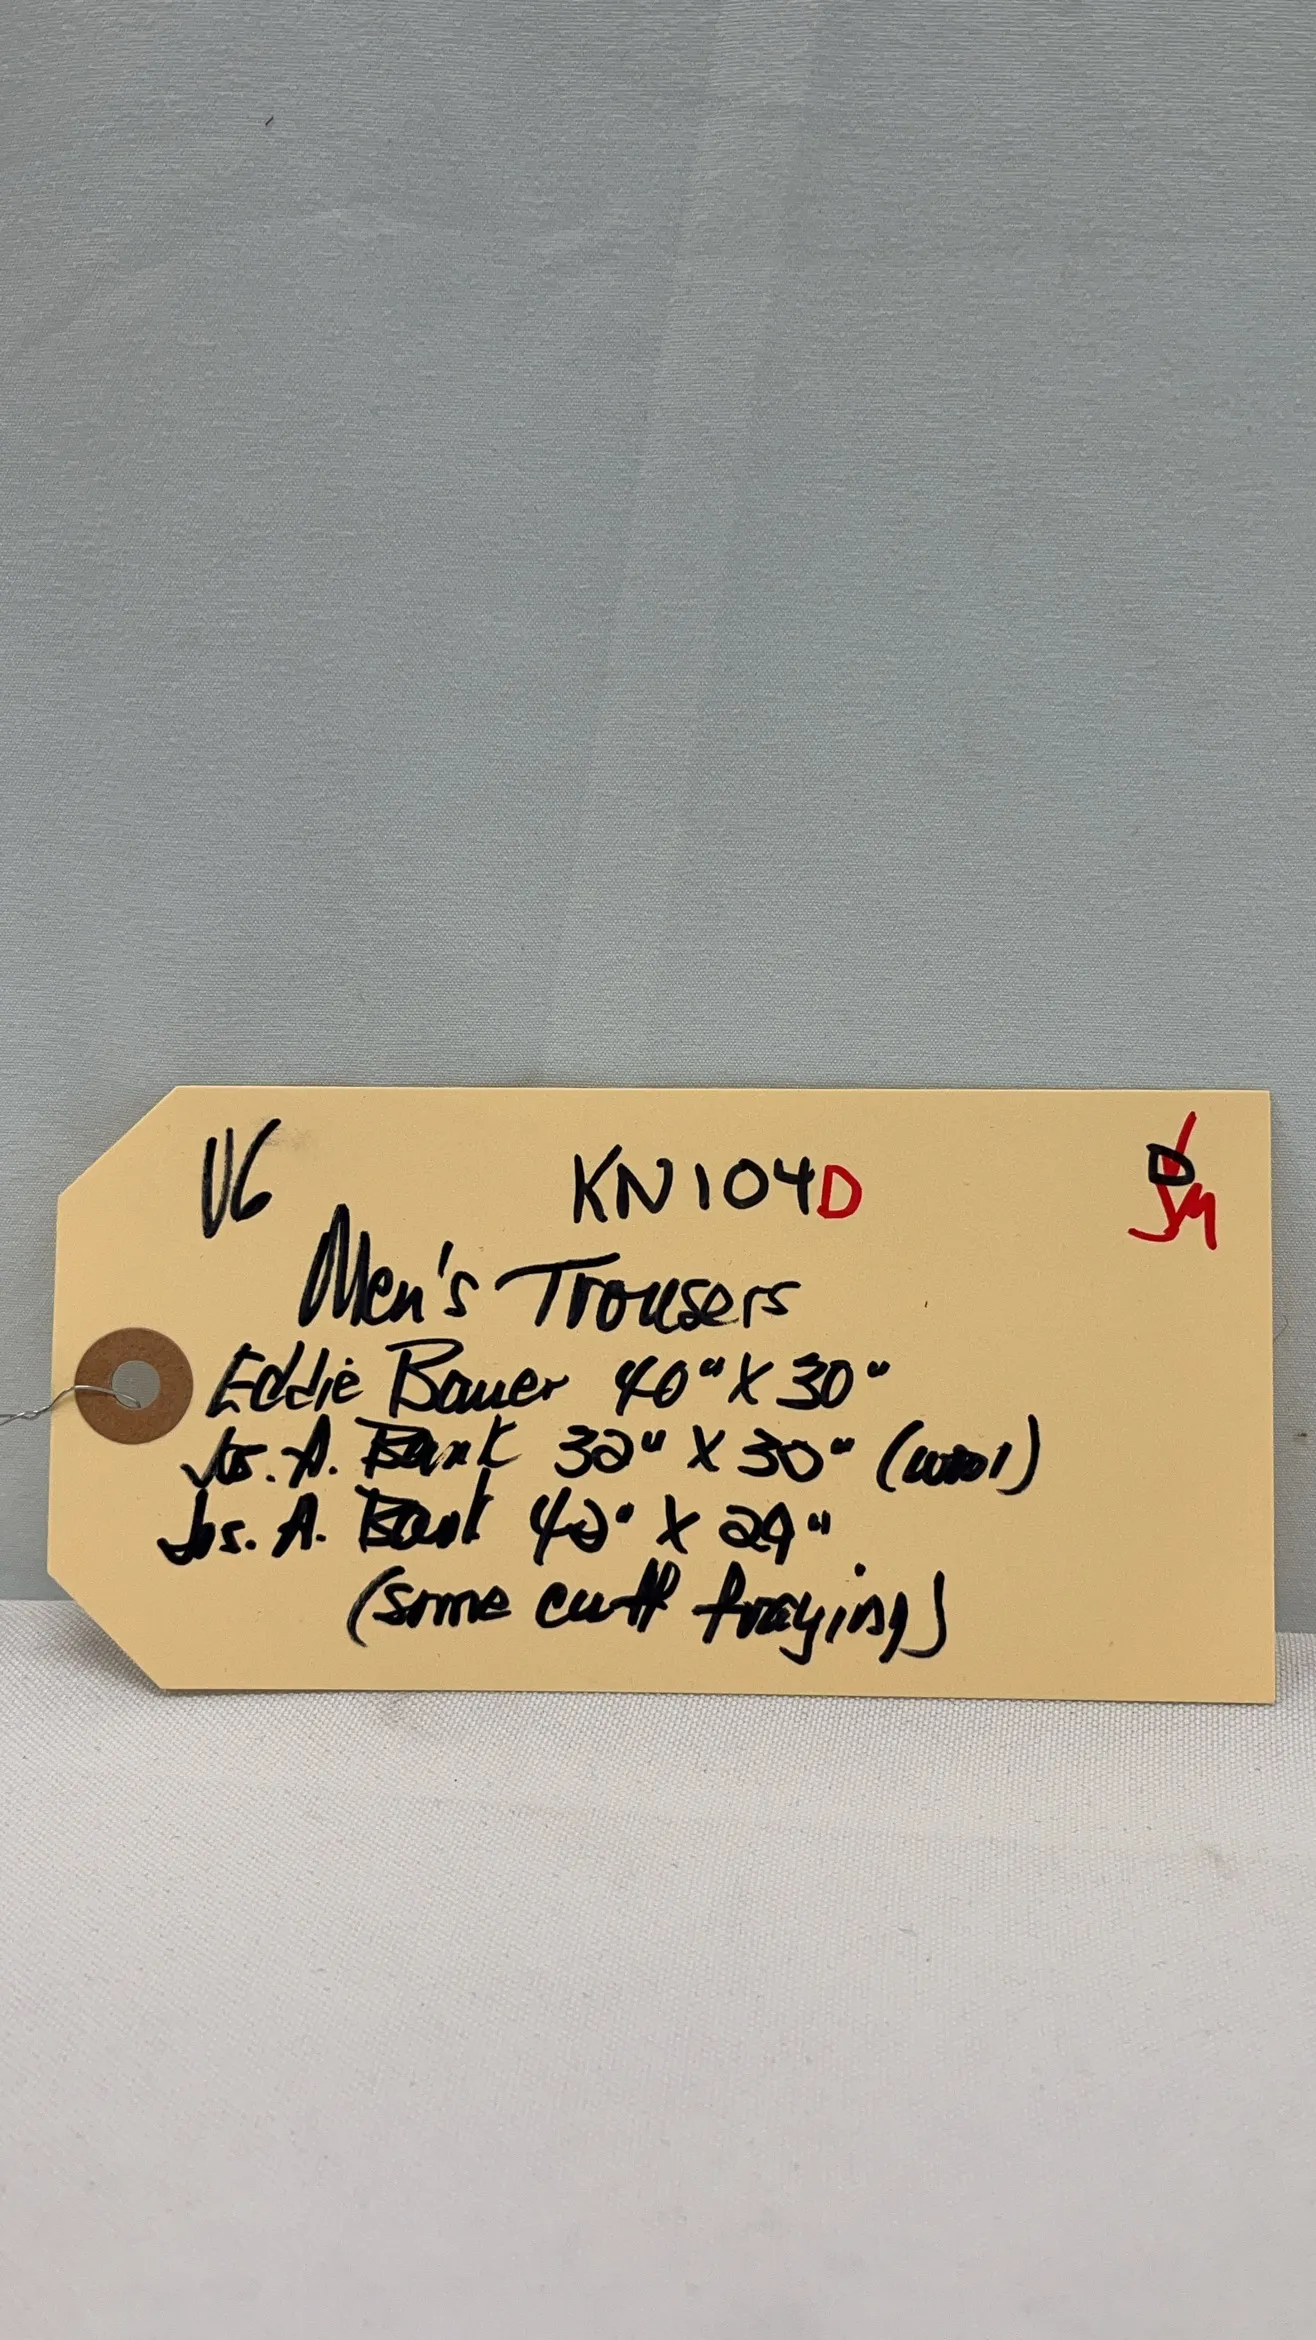 V6 KN104D D JM
Men's Trousers
Eddie Bauer 40" X 30"
Jos. A. Bank 32" X 30" (wool)
Jos. A. Bank 42" X 29"
(some cuff fraying)